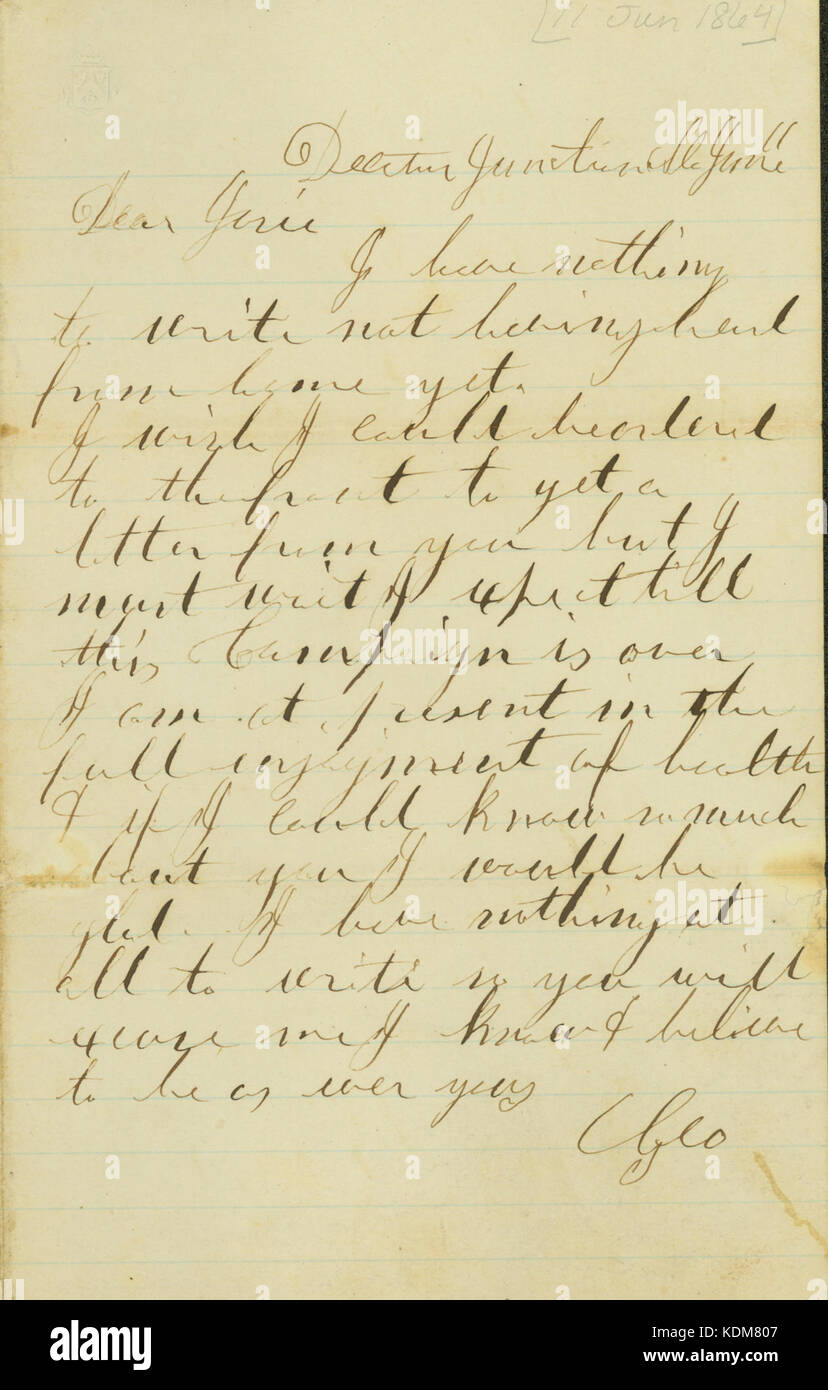 [11 Jun 1864]
Decatur Junction Ala June 11
Dear Josie
I have nothing
to write not having heard
from home yet.
I wish I could be ordered
to the front to get a
letter from you but I
must wait I expect till
this Campaign is over
I am at present in the
full enjoyment of health
& if I could know so much
bout you I would be
glad. I have nothing at
all to write so you will
excuse me I know & believe
to be as ever yours
Geo
alamy
Image ID: KDM807
www.alamy.com